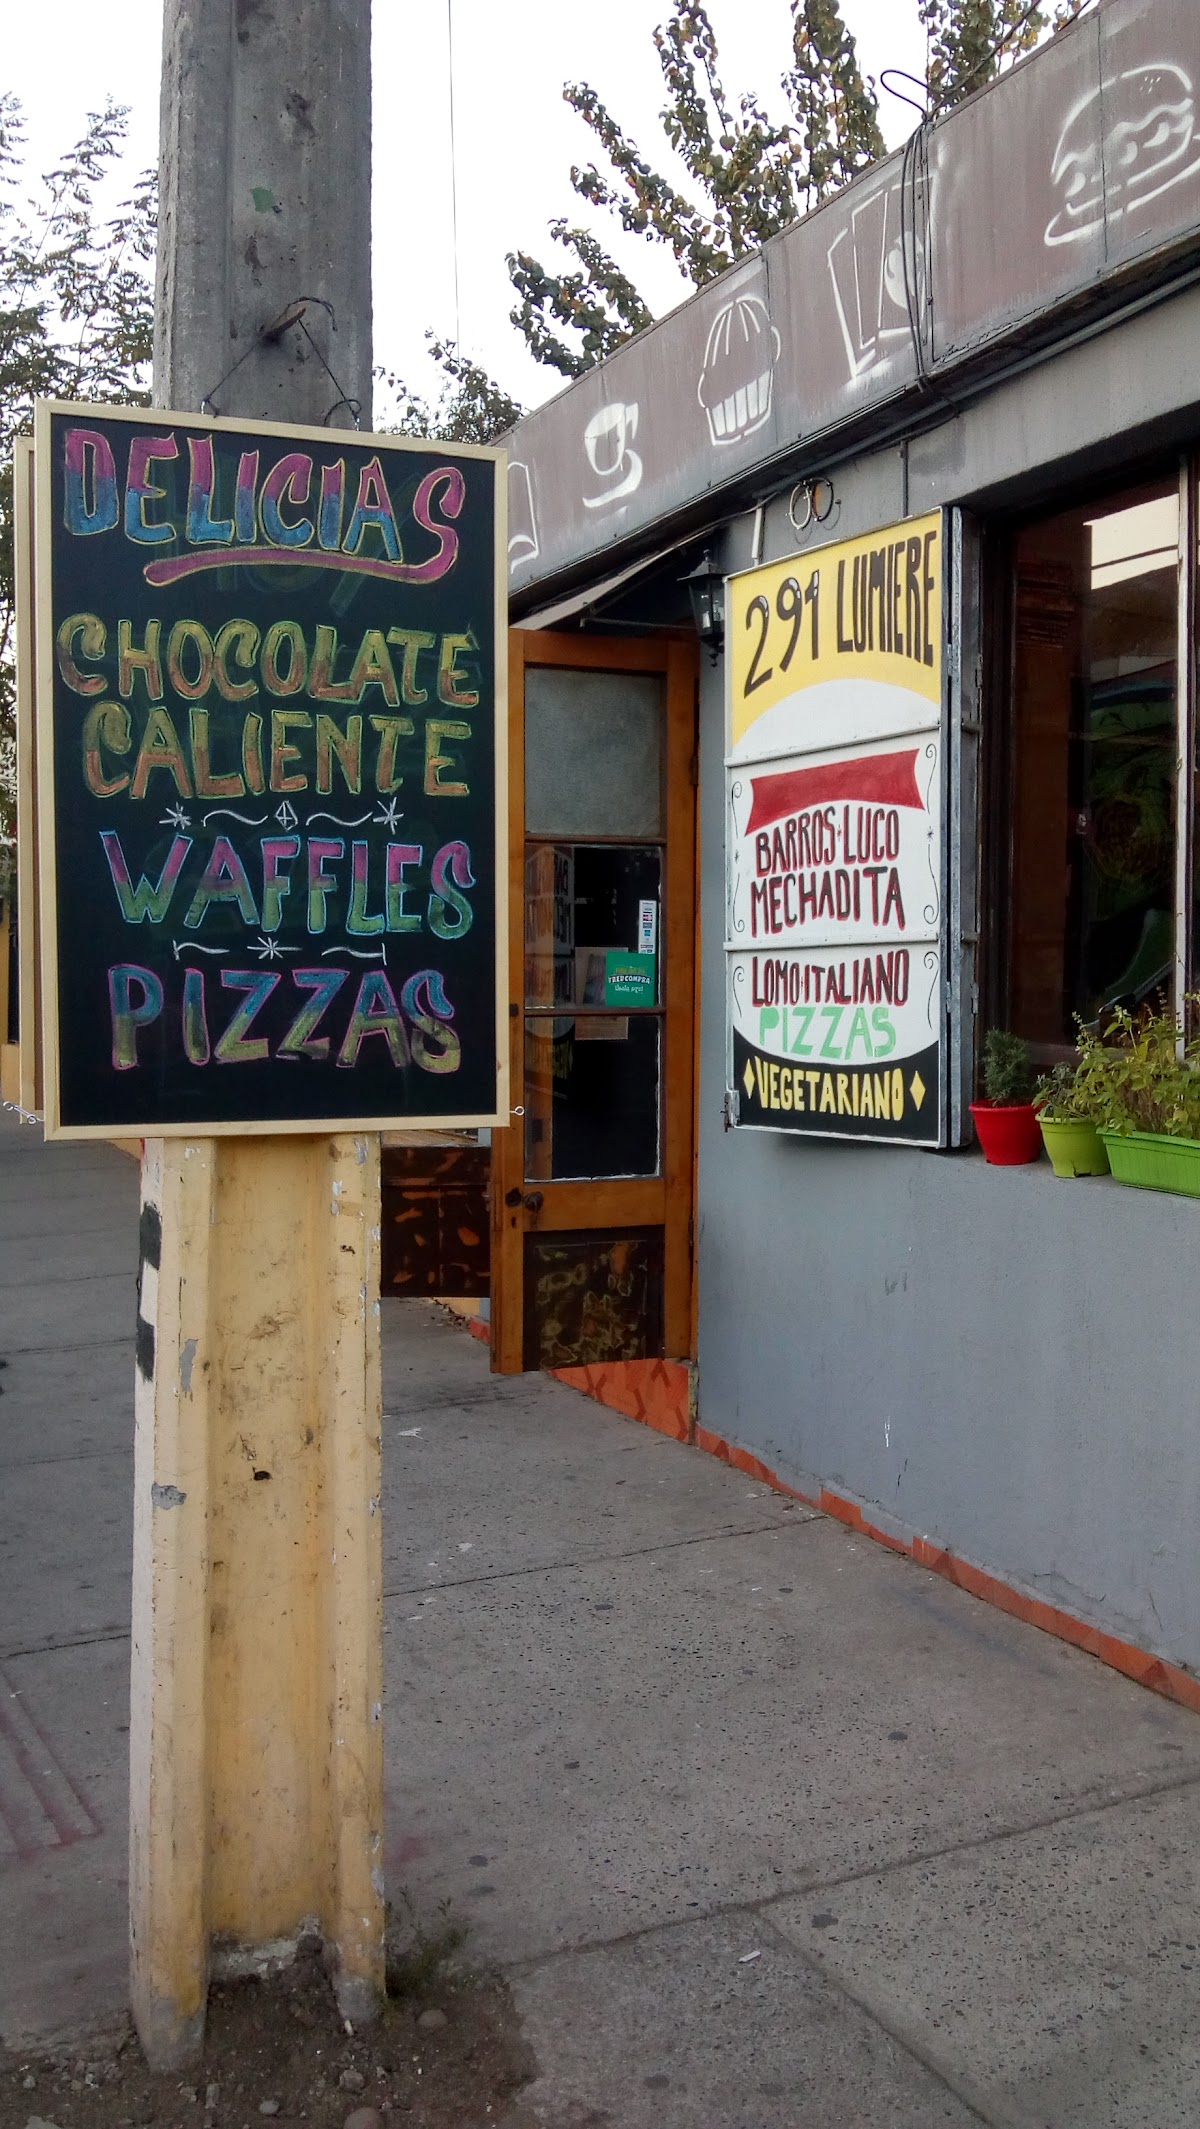 DELICIAS
CHOCOLATE
CALIENTE
WAFFLES
PIZZAS
291 LUMIERE
BARROS LUCO
MECHADITA
LOMO ITALIANO
PIZZAS
VEGETARIANO
REDCOMPRA